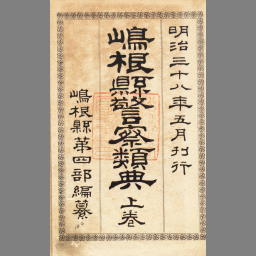 明治三十八年五月刊行
嶋根縣警察類典 上巻
嶋根縣第四部編纂